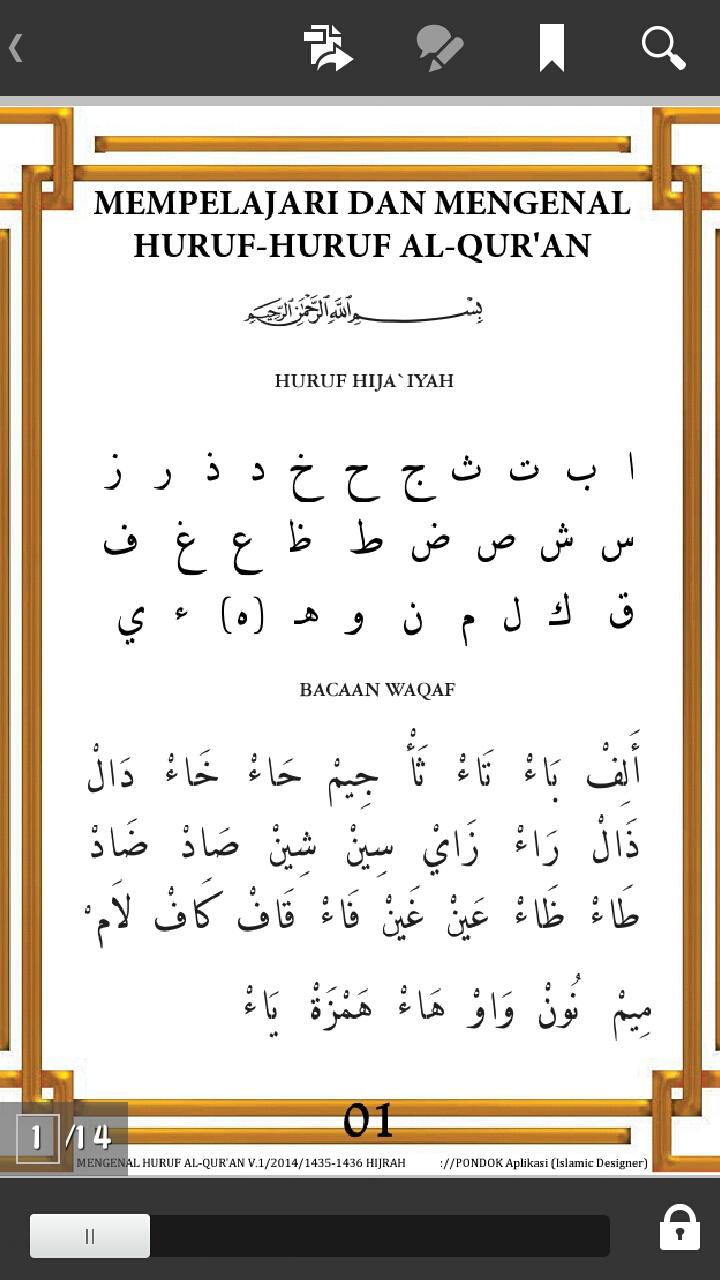 MEMPELAJARI DAN MENGENAL
HURUF-HURUF AL-QUR'AN
بِسْمِ اللَّهِ الرَّحْمَٰنِ الرَّحِيمِ
HURUF HIJA`IYAH
ا ب ت ث ج ح خ د ذ ر ز
س ش ص ض ط ظ ع غ ف
ق ك ل م ن و هـ (ه) ء ي
BACAAN WAQAF
أَلِفْ بَاءْ تَاءْ ثَأْ جِيمْ حَاءْ خَاءْ دَالْ
ذَالْ رَاءْ زَايْ سِينْ شِينْ صَادْ ضَادْ
طَاءْ ظَاءْ عَينْ غَينْ فَاءْ قَافْ كَافْ لَامْ
مِيمْ نُونْ وَاوْ هَاءْ هَمْزَةْ يَاءْ
01
1 /14
MENGENAL HURUF AL-QUR'AN V.1/2014/1435-1436 HIJRAH ://PONDOK Aplikasi (Islamic Designer)